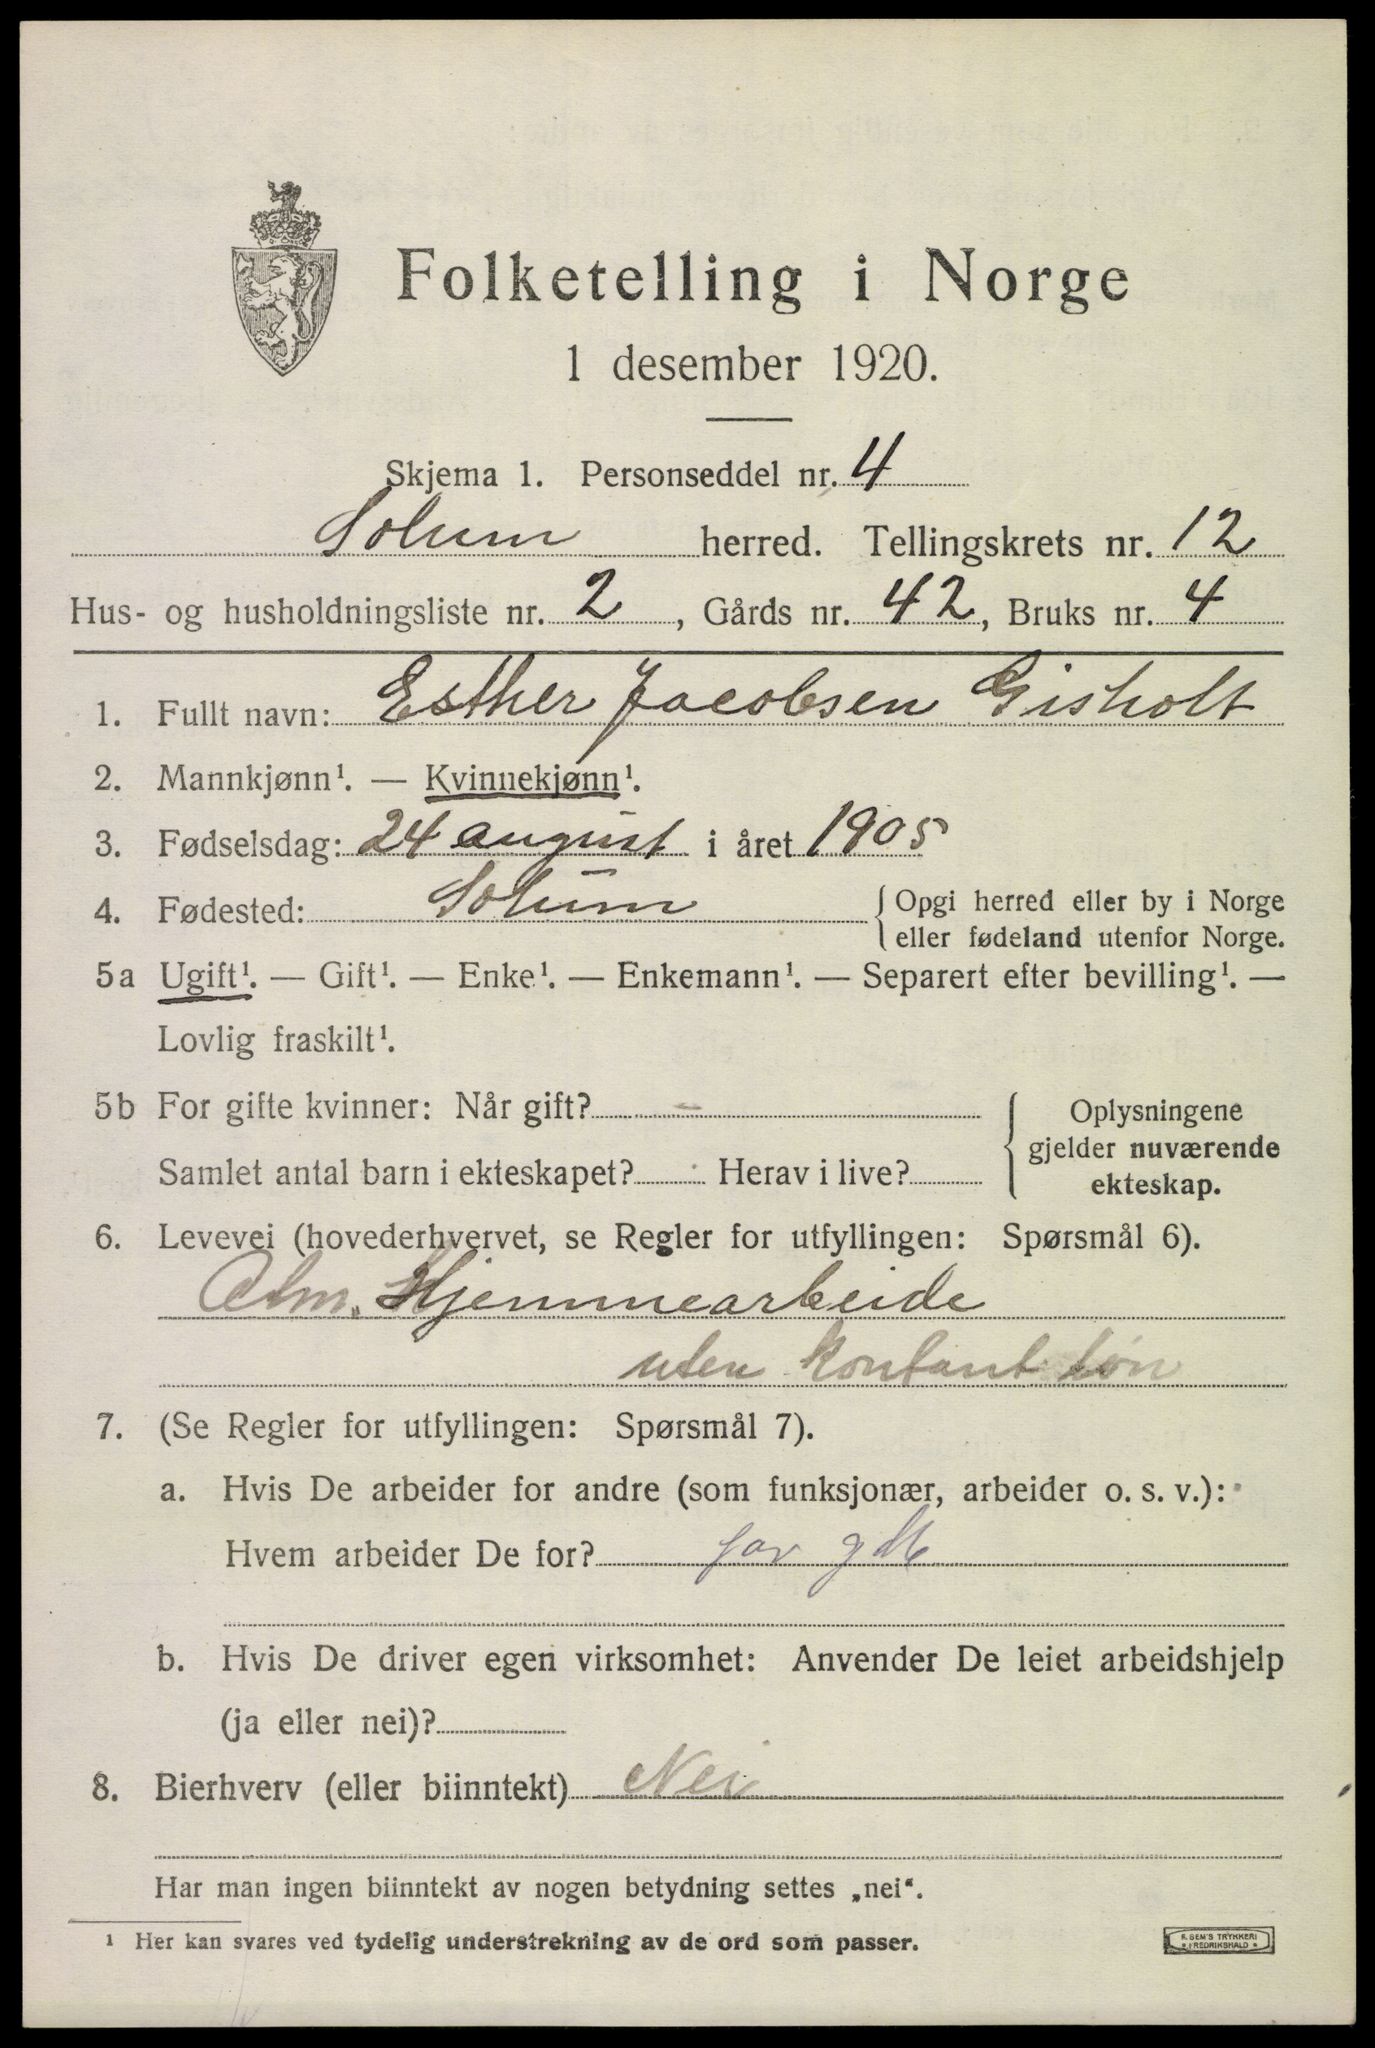 Folketelling i Norge
1 desember 1920.
Skjema 1. Personseddel nr. 4
Solum herred. Tellingskrets nr. 12
Hus- og husholdningsliste nr. 2, Gårds nr. 42, Bruks nr. 4
1. Fullt navn: Esther Jacobsen Gisholt
2. Mannkjønn¹. — Kvinnekjønn¹.
3. Fødselsdag: 24 august i året 1905
4. Fødested: Solum { Opgi herred eller by i Norge
eller fødeland utenfor Norge.
5a Ugift¹. — Gift¹. — Enke¹. — Enkemann¹. — Separert efter bevilling¹. —
Lovlig fraskilt¹.
5b For gifte kvinner: Når gift?
Samlet antal barn i ekteskapet? Herav i live?
{ Oplysningene
gjelder nuværende
ekteskap.
6. Levevei (hovederhvervet, se Regler for utfyllingen: Spørsmål 6).
Alm. Hjemmearbeide
uten kontant løn
7. (Se Regler for utfyllingen: Spørsmål 7).
a. Hvis De arbeider for andre (som funksjonær, arbeider o. s. v.):
Hvem arbeider De for? far
b. Hvis De driver egen virksomhet: Anvender De leiet arbeidshjelp
(ja eller nei)?
8. Bierhverv (eller biinntekt) Nei
Har man ingen biinntekt av nogen betydning settes „nei“.
¹ Her kan svares ved tydelig understrekning av de ord som passer.
F. SEM'S TRYKKERI
FREDRIKSHALD